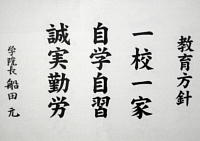 教育方針
一校一家
自学自習
誠実勤労
学院長 船田 元